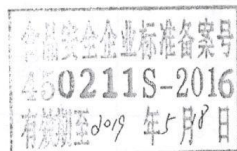 食品安全企业标准备案号
450211S-2016
有效期至2019年5月18日